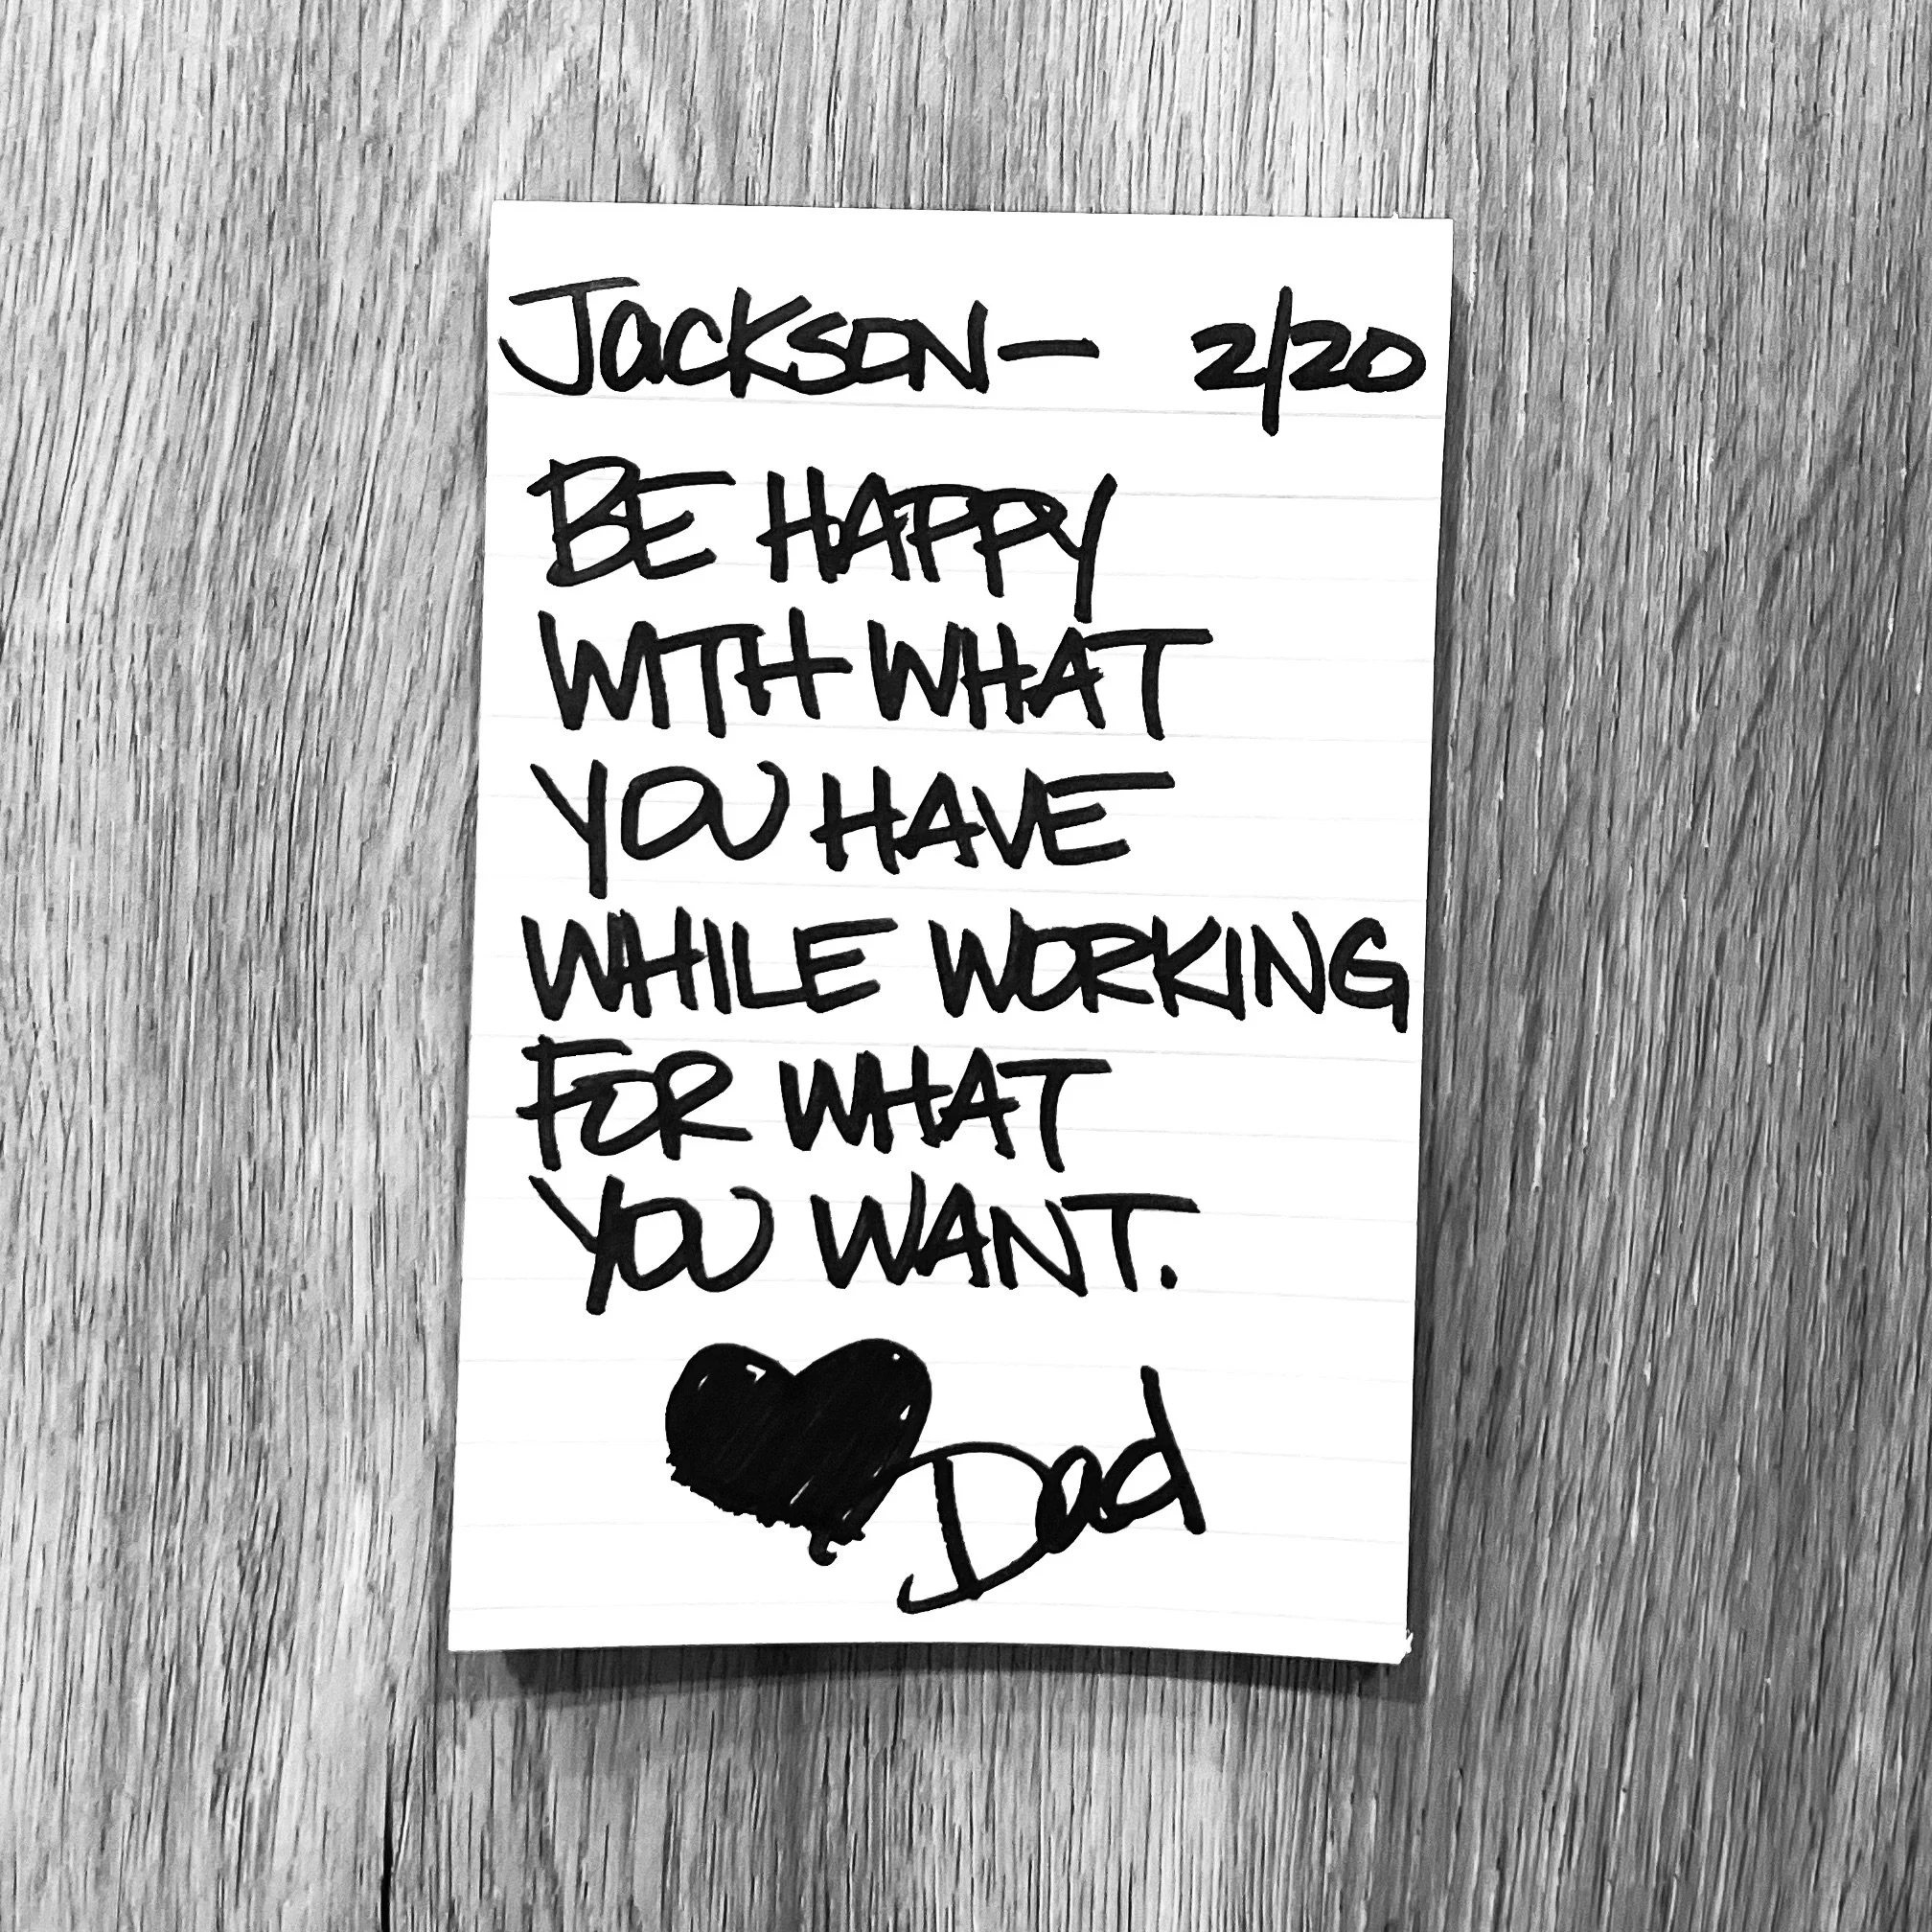 Jackson— 2/20
BE HAPPY
WITH WHAT
YOU HAVE
WHILE WORKING
FOR WHAT
YOU WANT.
Dad